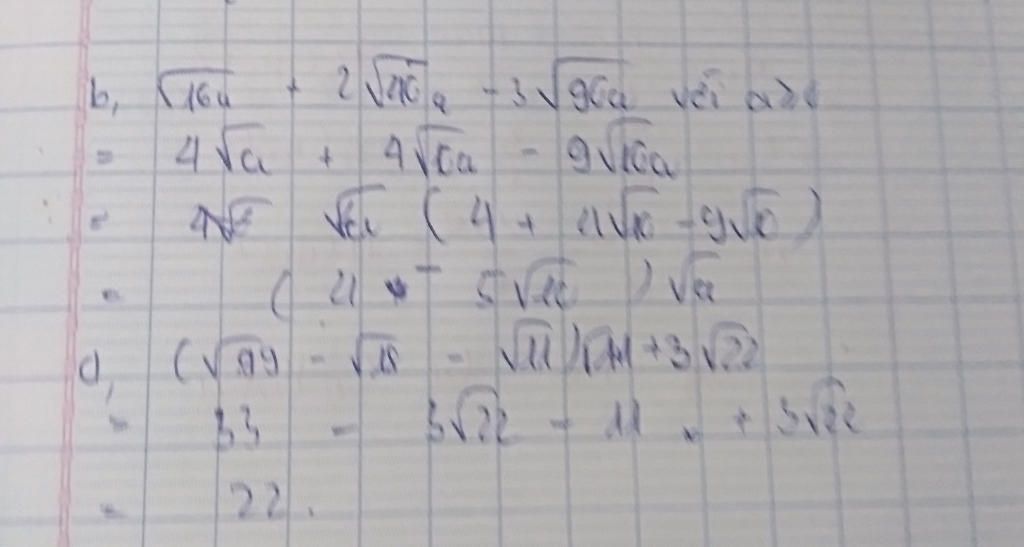 b, √16a + 2√40a - 3√90a với a≥0
= 4√a + 4√10a - 9√10a
= √a ( 4 + 4√10 - 9√10 )
= ( 4 - 5√10 ) √a
d, (√99 - √18 - √11)√11 + 3√22
= 33 - 3√22 - 11 + 3√22
= 22.